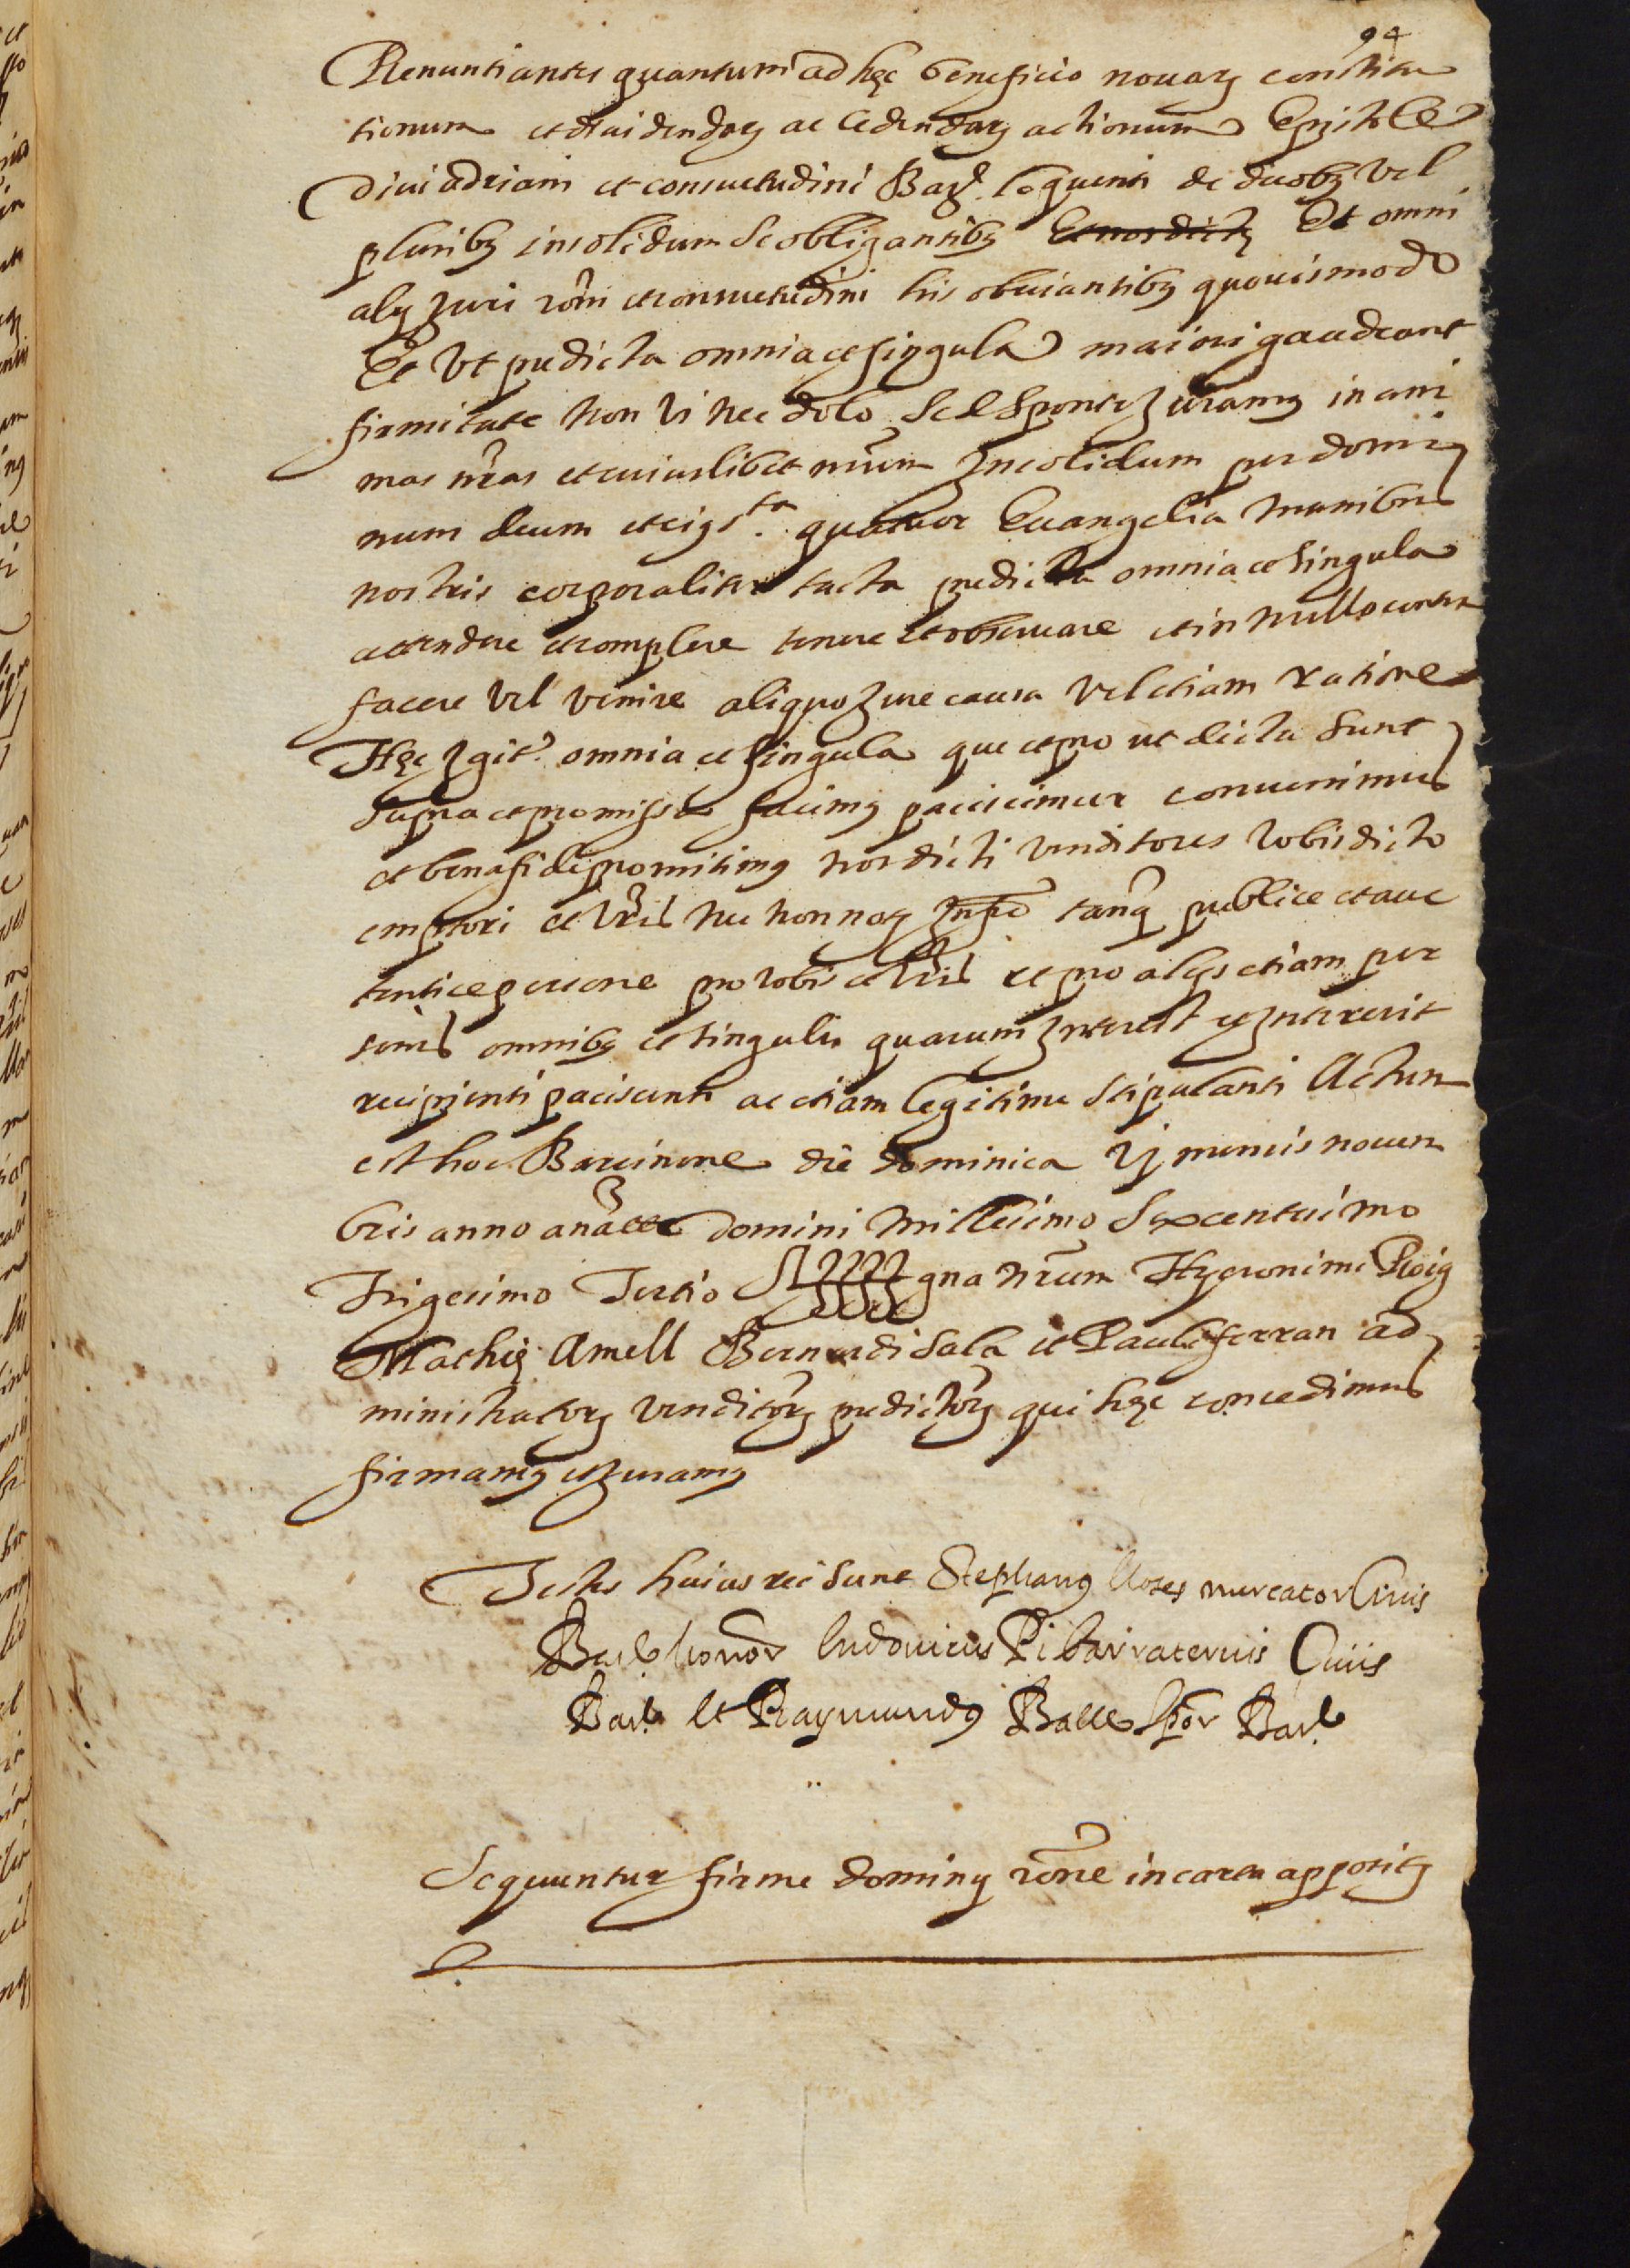 94
Renuntiantes quantum ad hęc beneficio novarꝫ constitu
tionum et dividendarꝫ ac cedendarꝫ actionum Epistole
divi adriani et consuetudini Barᵉ. loquenti de duobꝫ vel
pluribꝫ insolidum se obligantibꝫ Et nos dictꝫ Et omni
alij Juri rōni et consuetudini his obviantibꝫ quovismodo
Et ut predicta omnia et singula maiori gaudeant
firmitate non vi nec dolo sed sponte Juramꝰ in ani
mas nr̃as et cuiuslibet nrũm Insolidum per domi
num deum et eiꝰ sᵗᵃ. quatuor Evangelia manibus
nostris corporaliter tacta predicta omnia et singula
attendere et complere tenere et observare et in nullo contra
facere vel venire aliquo Jure causa vel etiam ratione
Hęc Igitʳ. omnia et singula que et pro ut dicta sunt
supra et promissa facimꝰ paciscimur convenimus
et bona fide promitimꝰ nos dicti venditores vobis dicto
emptori et vr̃is nec non notꝫ Infr̃o tanꝗ̃ publice et auc
tentice persone pro vobis et vr̃is et pro alijs etiam per
sonis omnibꝫ et singulis quarum Interest et Intererit
recipienti paciscenti ac etiam legitime stipulanti Actum
est hoc Barcinone die dominica vj mensis novem
bris anno a natte domini Millesimo Sexcentesimo
Trigesimo Tertio Sigggggna nrũm Hyeronimi Roig
Mathię Amell Bernardi Sala et Pauli ferran ad
ministratorꝫ venditorꝫ predictorꝫ qui hęc concedimus
firmamꝰ et Juramꝰ
Testes huius rei sunt Stephanꝰ mercator Civis
Barᵉ honor̃ Ludovicus Civis
Barᵉ. et Raymundꝰ Batlle Barᵉ.
Sequuntur firme dominꝫ rōne in carta appositꝫ